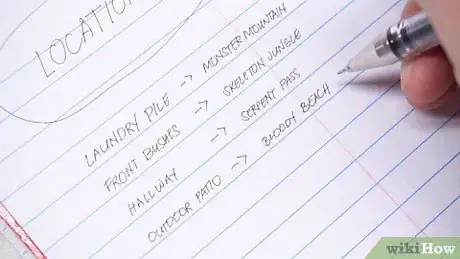 LOCATION
LAUNDRY PILE -> MONSTER MOUNTAIN
FRONT BUSHES -> SKELETON JUNGLE
HALLWAY -> SERPENT PASS
OUTDOOR PATIO -> BLOODY BEACH
wikiHow